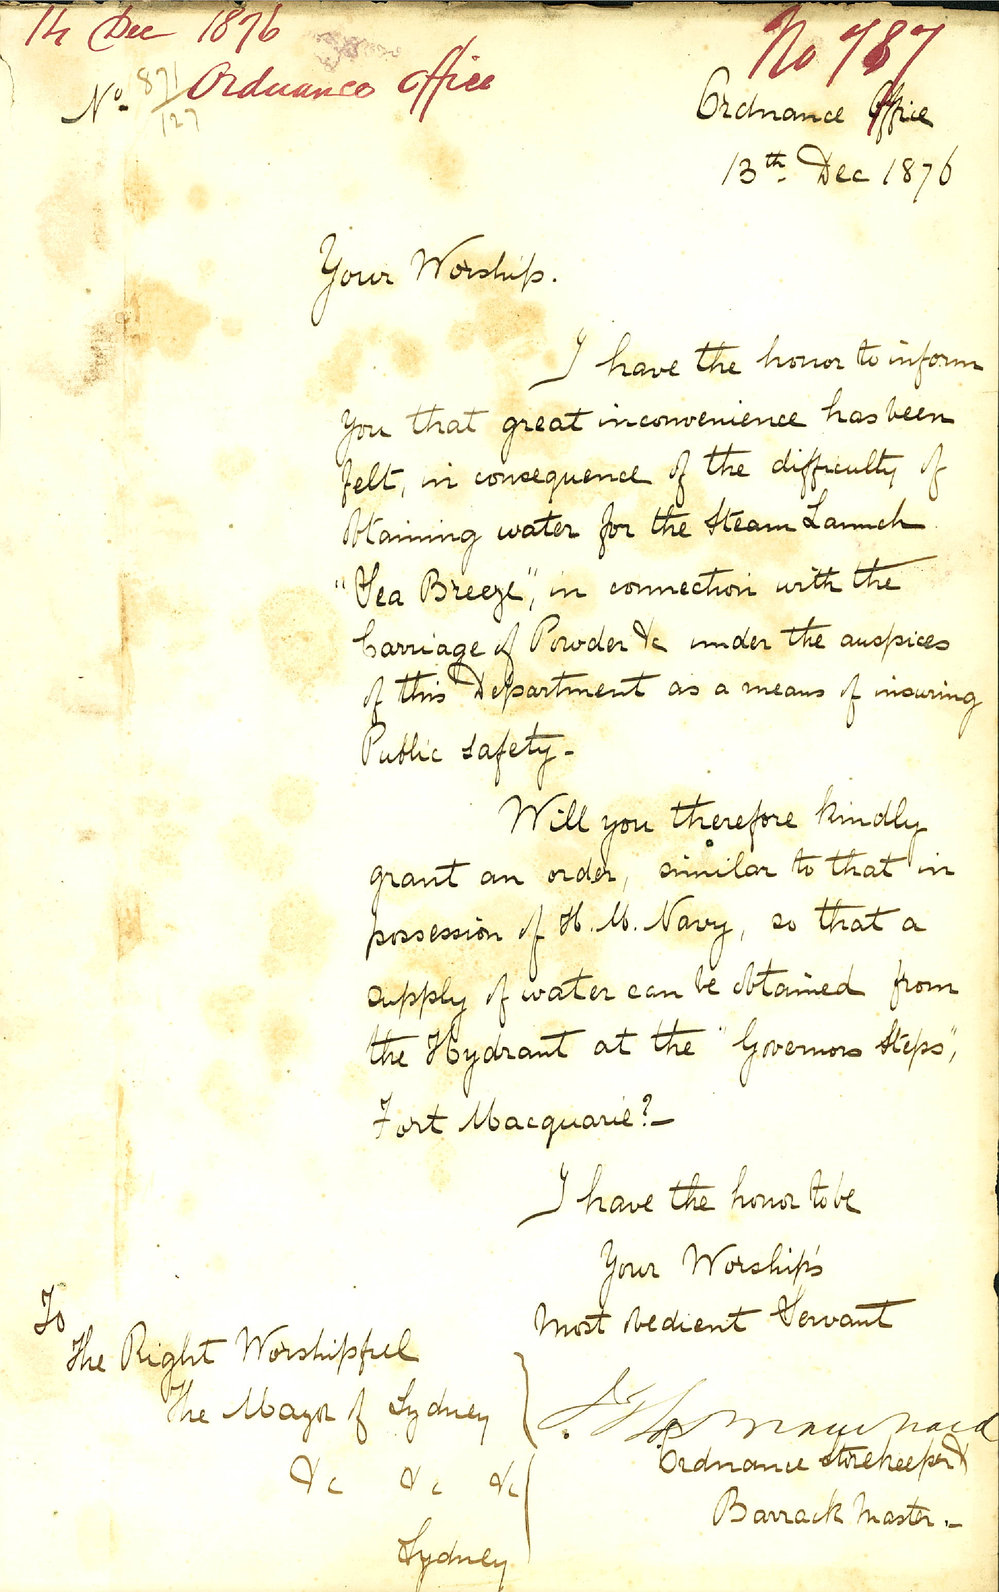 14 Dec 1876
No 787
No. 871/127
Ordnance Office
Ordnance Office
13th. Dec 1876
Your Worship.
I have the honor to inform
you that great inconvenience has been
felt, in consequence of the difficulty of
obtaining water for the Steam Launch
"Sea Breeze", in connection with the
Carriage of Powder &c under the auspices
of this Department as a means of insuring
Public safety -
Will you therefore kindly
grant an order, similar to that in
possession of H. M. Navy, so that a
supply of water can be obtained from
the Hydrant at the "Governors Steps",
Fort Macquarie? -
I have the honor to be
Your Worship's
Most obedient Servant
Ordnance Storekeeper &
Barrack Master. -
To
The Right Worshipful
The Mayor of Sydney
&c &c &c
Sydney